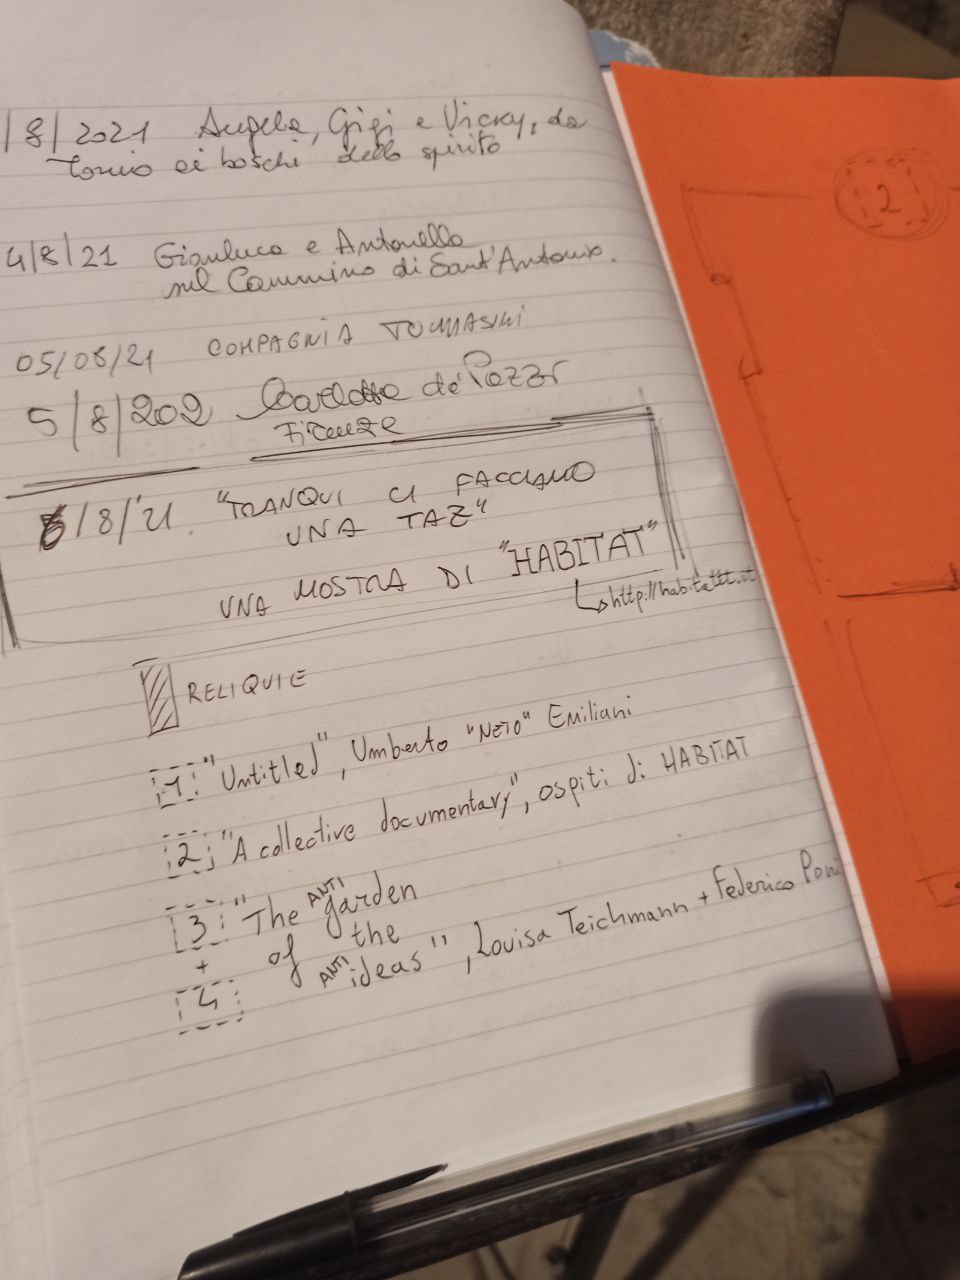 /8/2021 Angela, Gigi e Vicky, da
Torino ai boschi dello spirito
4/8/21 Gianluca e Antonello
nel Cammino di Sant'Antonio.
05/08/21 COMPAGNIA TOMASINI
5/8/202 Carlotta de' Pazzi
Firenze
6/8/'21. "TRANQUI CI FACCIAMO
UNA TAZ"
UNA MOSTRA DI "HABITAT"
http://habitattt.it
RELIQUIE
1. "Untitled", Umberto "NETO" Emiliani
2. "A collective documentary", ospiti di HABITAT
3. "The ANTI garden
+ of the
4 ANTI ideas", Louisa Teichmann + Federico Poni
2